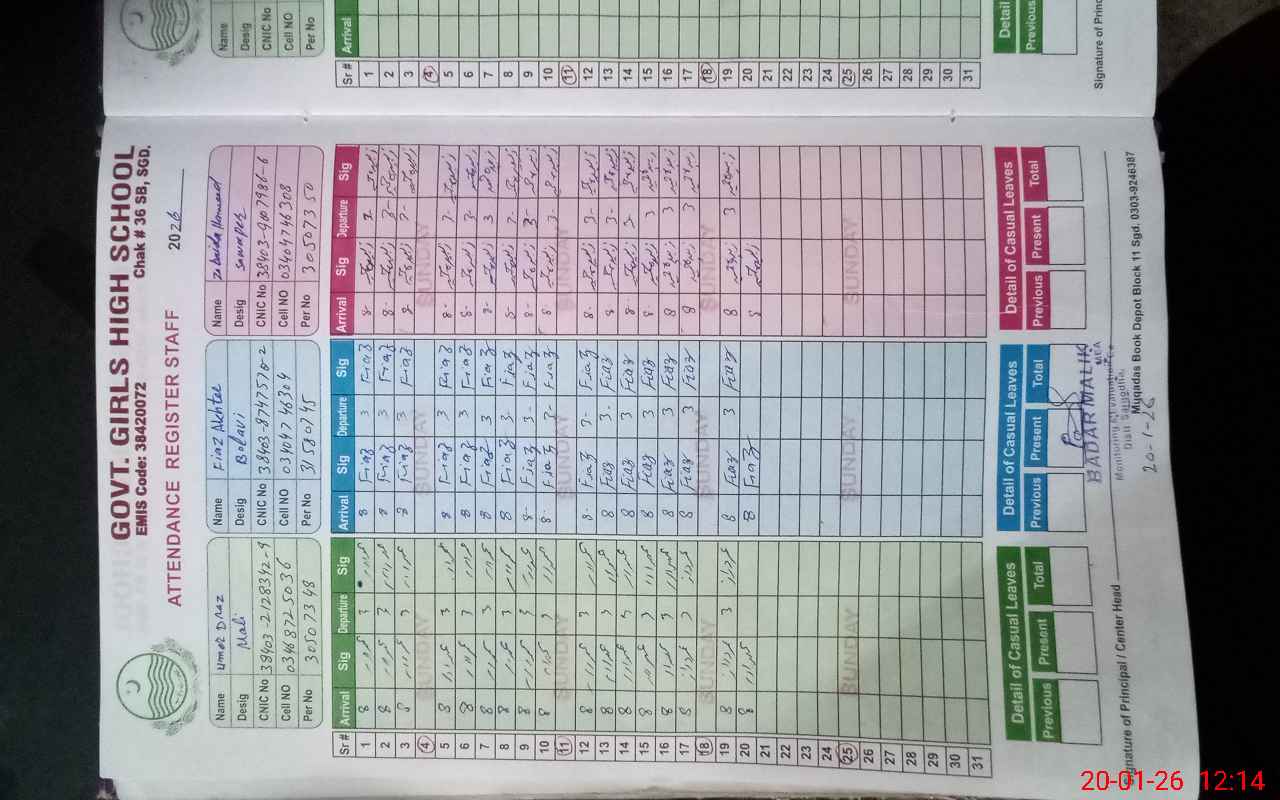 GOVT. GIRLS HIGH SCHOOL
EMIS Code: 38420072 Chak # 36 SB, SGD.
ATTENDANCE REGISTER STAFF 2026
Name Umer Draz
Desig Mali
CNIC No 38403-2128342-9
Cell NO 03468725036
Per No 30507348
Name Fiaz Akhter
Desig
CNIC No
Cell NO 03404746304
Per No 31580745
Name Zubaida
Desig
CNIC No 38403-9607986-6
Cell NO 03404746308
Per No 30507350
Sr # Arrival Sig Departure Sig Arrival Sig Departure Sig Arrival Sig Departure Sig
1 8 3 8 Fiaz 3 Fiaz 8
2 8 3 8 Fiaz 3 Fiaz 8
3 8 3 8 Fiaz 3 Fiaz 8
4 SUNDAY SUNDAY SUNDAY
5 8 3 8 Fiaz 3 Fiaz 8
6 8 3 8 Fiaz 3 Fiaz 8
7 8 3 8 Fiaz 3 Fiaz 8 3
8 8 3 8 Fiaz 3 Fiaz 8
9 8 3 8 Fiaz 3 Fiaz 8 3
10 8 3 8 Fiaz 3 Fiaz 8 3
11 SUNDAY SUNDAY SUNDAY
12 8 3 8 Fiaz 3 Fiaz 8 3
13 8 3 8 Fiaz 3 Fiaz 8 3
14 8 3 8 Fiaz 3 Fiaz 8 3
15 8 3 8 Fiaz 3 Fiaz 8 3
16 8 3 8 Fiaz 3 Fiaz 8 3
17 8 3 8 Fiaz 3 Fiaz 8 3
18 SUNDAY SUNDAY SUNDAY
19 8 3 8 Fiaz 3 Fiaz 8 3
20 8 8 Fiaz 8
21
22
23
24
25 SUNDAY SUNDAY SUNDAY
26
27
28
29
30
31
Detail of Casual Leaves Detail of Casual Leaves Detail of Casual Leaves
Previous Present Total Previous Present Total Previous Present Total
BADAR MALIK
MEA
Monitoring & Evaluation
Distt Sargodha.
Signature of Principal / Center Head
20-1-26
Muqadas Book Depot Block 11 Sgd. 0303-9246387
Name
Desig
CNIC No
Cell NO
Per No
Sr # Arrival
1
2
3
4
5
6
7
8
9
10
11
12
13
14
15
16
17
18
19
20
21
22
23
24
25
26
27
28
29
30
31
Detail
Previous
Signature of Princ
20-01-26 12:14